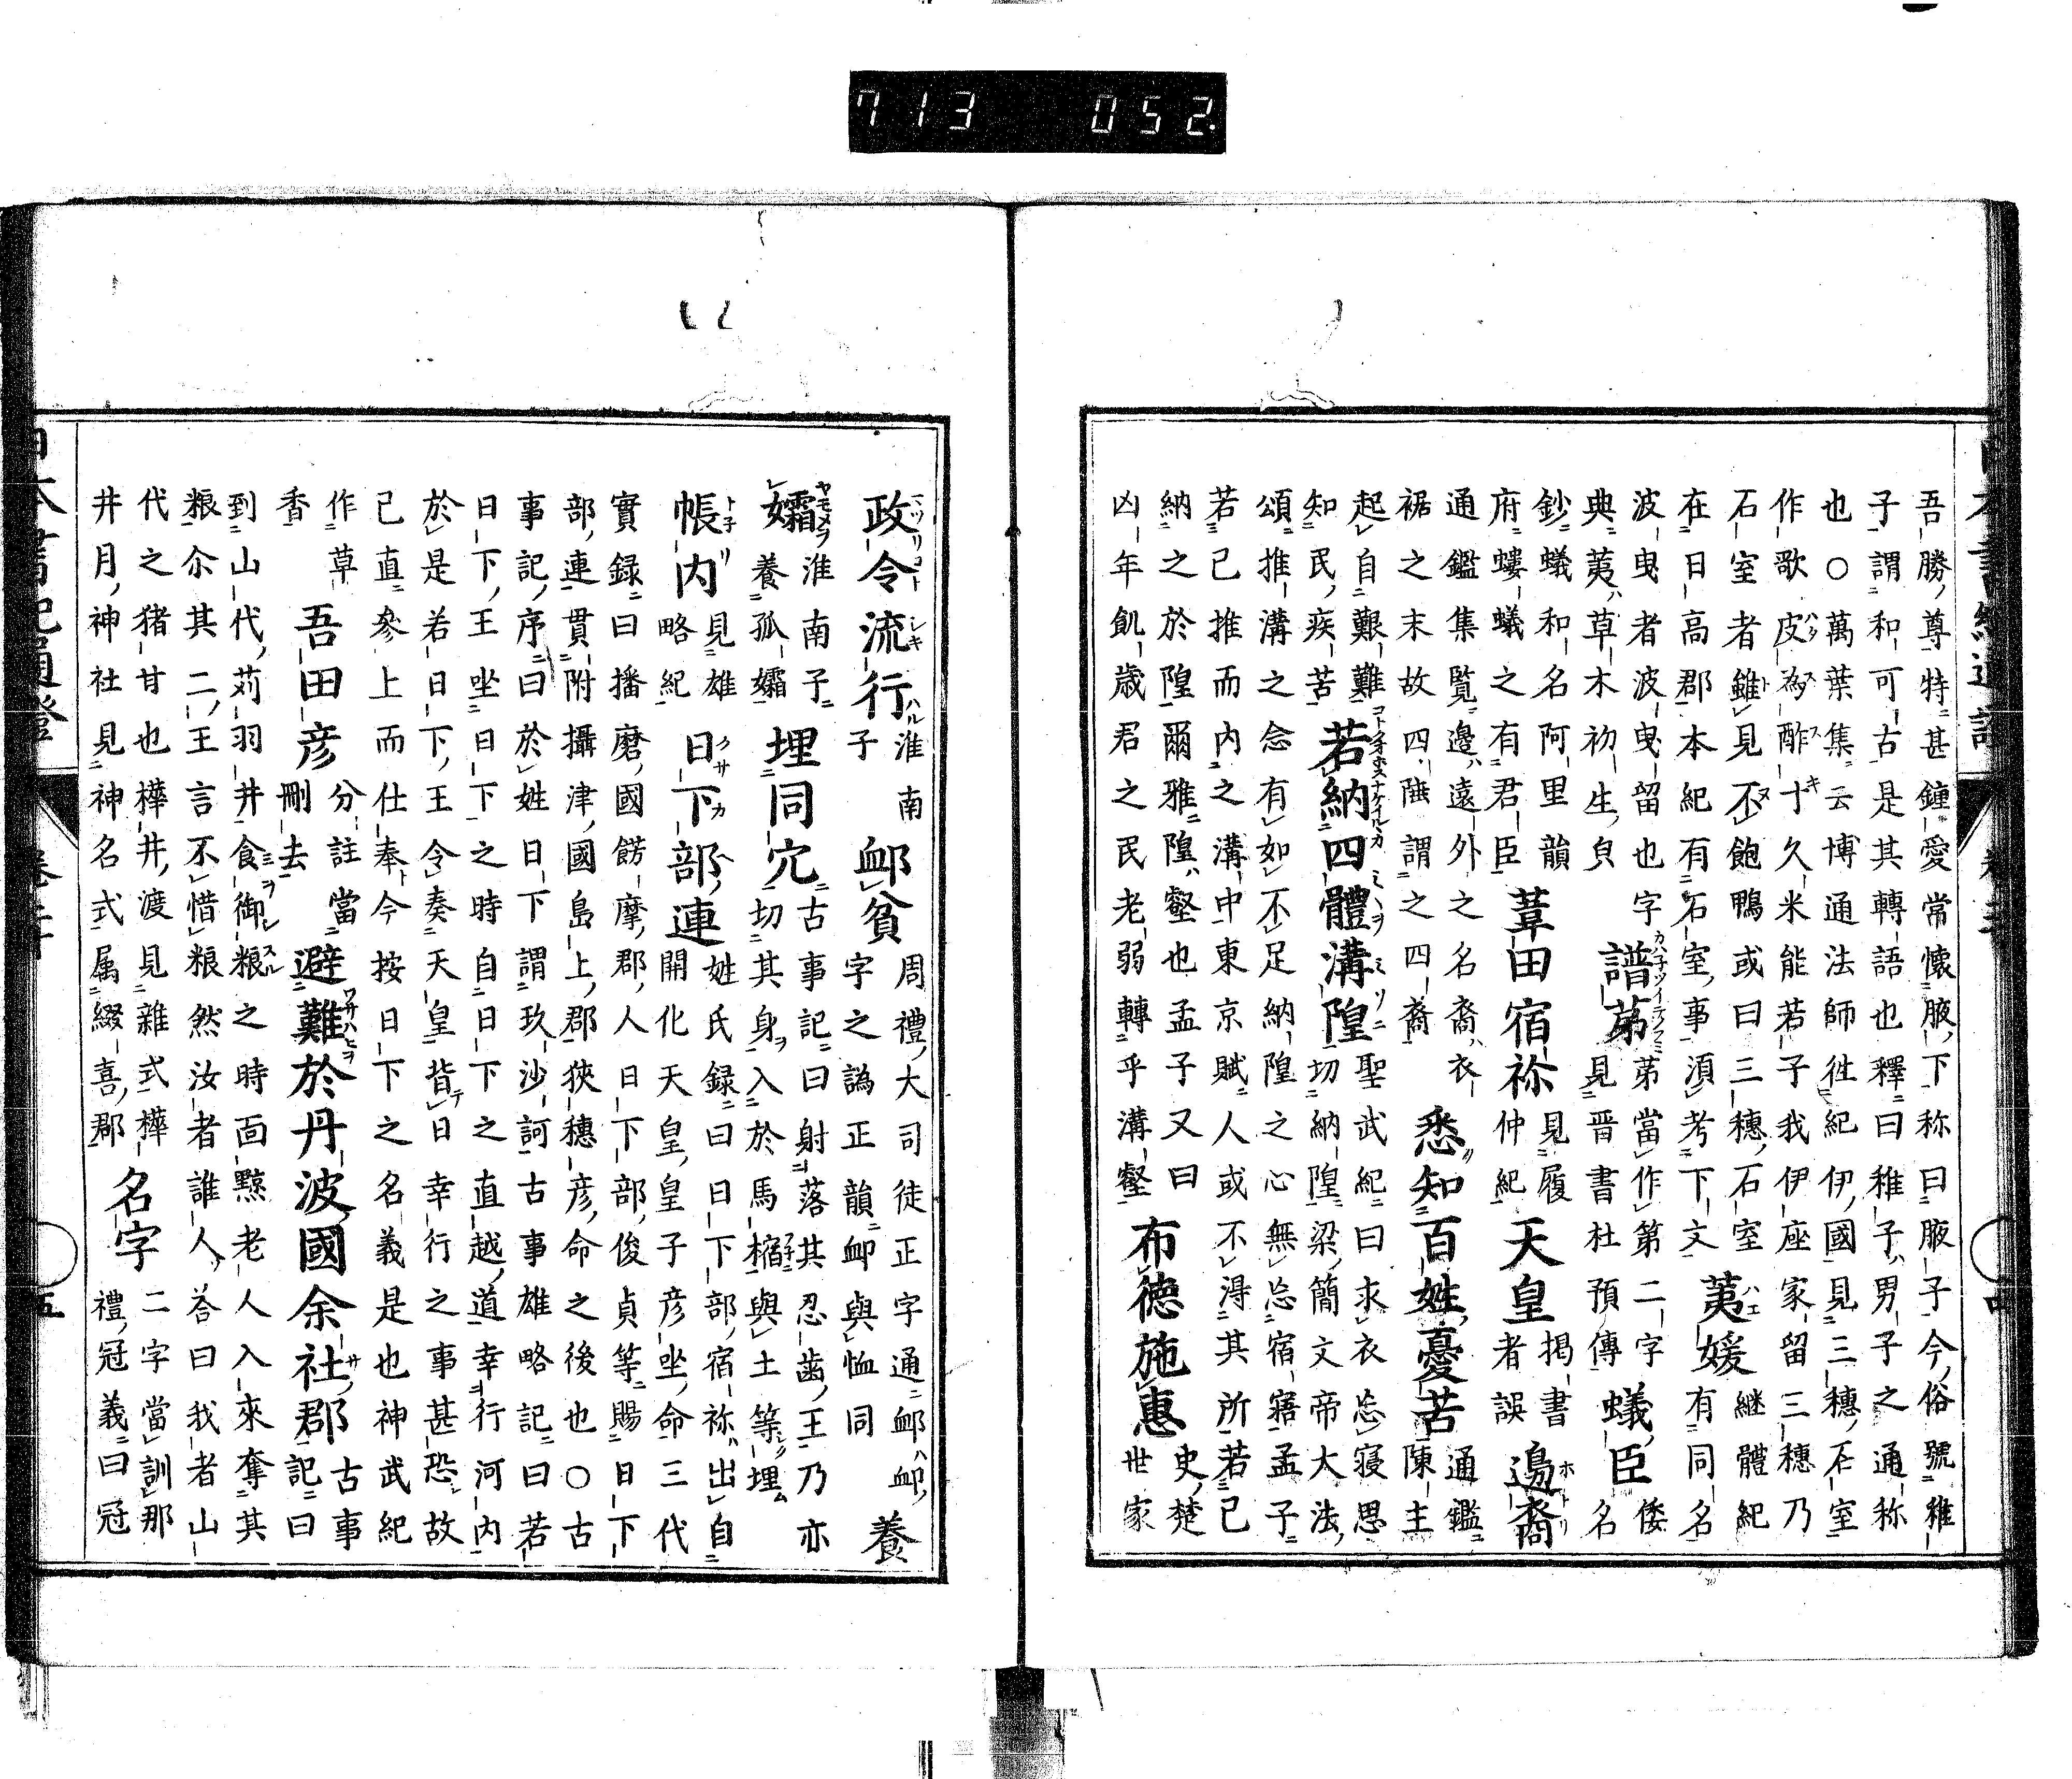 713 052
吾勝尊特甚鍾愛常懷腋下称曰腋子今俗號稚
子謂和可古是其轉語也釋曰稚子男子之通称
也○萬葉集云博通法師徃紀伊國見三穗石室
作歌皮為酢寸久米能若子我伊座家留三穗乃
石室者雖見不飽鴨或曰三穗石室継體紀
在日高郡本紀有石室事湏考下文 荑媛 有同名
波曳者波曳留也字
典荑草木初生㒵 譜苐 苐當作第二字見晋書杜預傳 蟻臣 倭名
鈔蟻和名阿里韻
府螻蟻之有君臣 葦田宿祢 見履仲紀 天皇 掲書者誤 邊裔
通鑑集覧邊遠外之名裔衣
裾之末故四陲謂之四裔 悉知百姓憂苦 通鑑陳主
起自艱難
知民疾苦 若納四體溝隍 聖武紀曰求衣忘寝思
切納隍梁簡文帝大法
頌推溝之念有如不足納隍之心無忘宿寤孟子
若己推而内之溝中東京賦人或不淂其所若己
納之於隍爾雅隍壑也孟子又曰
凶年飢歳君之民老弱轉乎溝壑 布德施惠 史楚世家
政令流行 淮南子 䘏貧 周禮大司徒正字通䘏䘏
字之譌正韻䘏與恤同 養
孀 淮南子養孤孀 埋同穴 古事記曰射落其忍歯王乃亦
切其身入於馬樎與土等埋
帳内 見雄略紀 日下部連 姓氏録曰日下部宿祢出自
開化天皇皇子彦坐命三代
實録曰播磨國餝摩郡人日下部俊貞等賜日下
部連貫附攝津國島上郡狹穗彦命之後也○古
事記序曰於姓日下謂玖沙訶古事雄略記曰若
日下王坐日下之時自日下之直越道幸行河内
於是若日下王令奏天皇背日幸行之事甚恐故
己直參上而仕奉今按日下之名義是也神武紀
作草
香 吾田彦 分註當刪去 避難於丹波國余社郡 古事記曰
到山代苅羽井食御粮之時面黥老人入來奪其
粮尒其二王言不惜粮然汝者誰人荅曰我者山
代之猪甘也樺井渡見雜式樺
井月神社見神名式属綴喜郡 名字 二字當訓那
禮冠義曰冠
日本書紀通證 卷二十 五